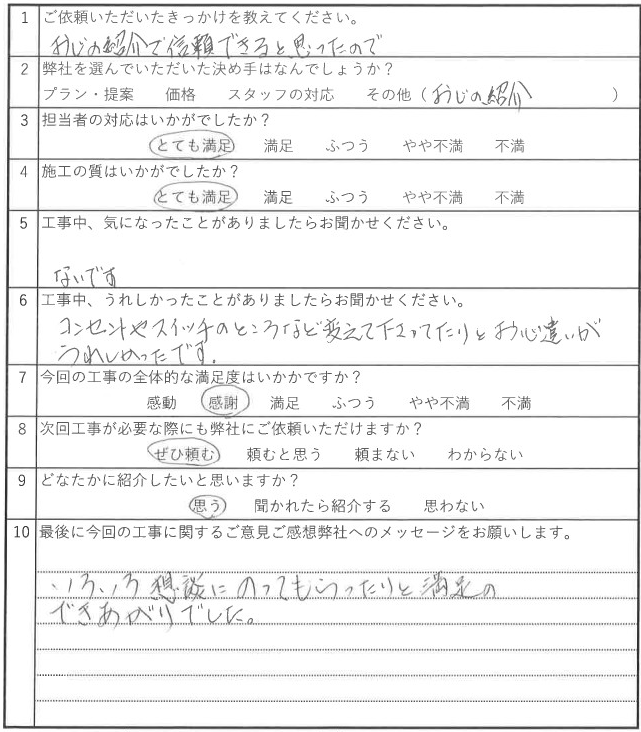 1 ご依頼いただいたきっかけを教えてください。
おじの紹介で信頼できると思ったので
2 弊社を選んでいただいた決め手はなんでしょうか？
プラン・提案 価格 スタッフの対応 その他（おじの紹介 ）
3 担当者の対応はいかがでしたか？
とても満足 満足 ふつう やや不満 不満
4 施工の質はいかがでしたか？
とても満足 満足 ふつう やや不満 不満
5 工事中、気になったことがありましたらお聞かせください。
ないです
6 工事中、うれしかったことがありましたらお聞かせください。
コンセントやスイッチのところなど変えて下さってたりとお心遣いが
うれしかったです。
7 今回の工事の全体的な満足度はいかかですか？
感動 感謝 満足 ふつう やや不満 不満
8 次回工事が必要な際にも弊社にご依頼いただけますか？
ぜひ頼む 頼むと思う 頼まない わからない
9 どなたかに紹介したいと思いますか？
思う 聞かれたら紹介する 思わない
10 最後に今回の工事に関するご意見ご感想弊社へのメッセージをお願いします。
いろいろ想談にのってもらったりと満足の
できあがりでした。